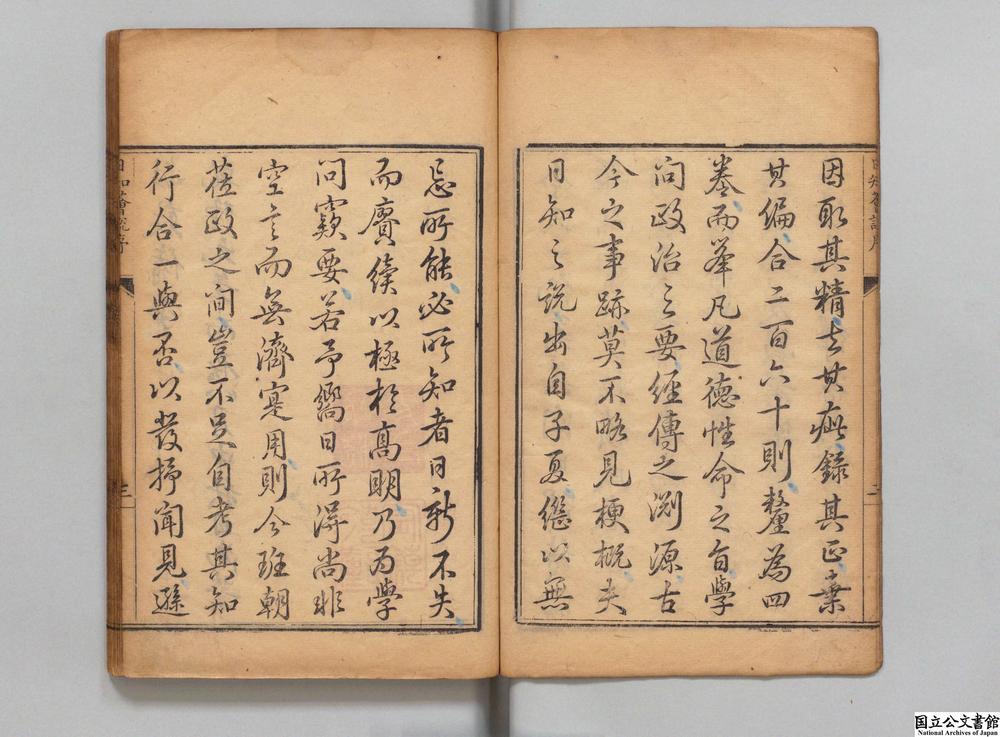 因取其精去其疵錄其正棄
其偏合二百六十則釐為四
卷而舉凡道德性命之旨學
問政治之要經傳之淵源古
今之事跡莫不略見梗概夫
日知之說出自子夏繼以無
忘所能必所知者日新不失
而賡續以極於高明乃為學
問竅要若予嚮日所得尚非
空言而無濟寔用則今班朝
莅政之間豈不足自考其知
行合一與否以發抒聞見遜
日知薈說序
三
国立公文書館
National Archives of Japan